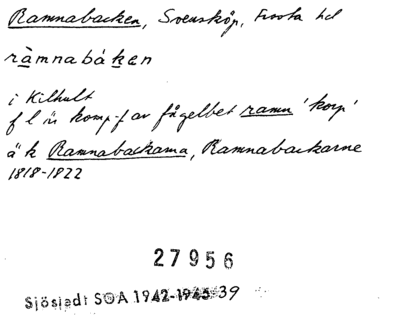 Ramnabacken, Svensköp, Frosta hd
ràmnabáken
i Kilhult
f l är komp-f av fågelbet ramn 'korp'
ä k Ramnabackarna, Ramnabackarne
1818-1822
27956
Sjöstedt SOA 1942-1945 39